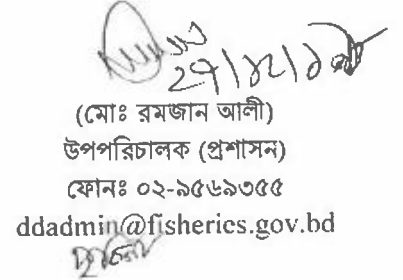 (মোঃ রমজান আলী)
উপপরিচালক (প্রশাসন)
ফোনঃ ০২-৯৫৬৯৩৫৫
ddadmin@fisherics.gov.bd